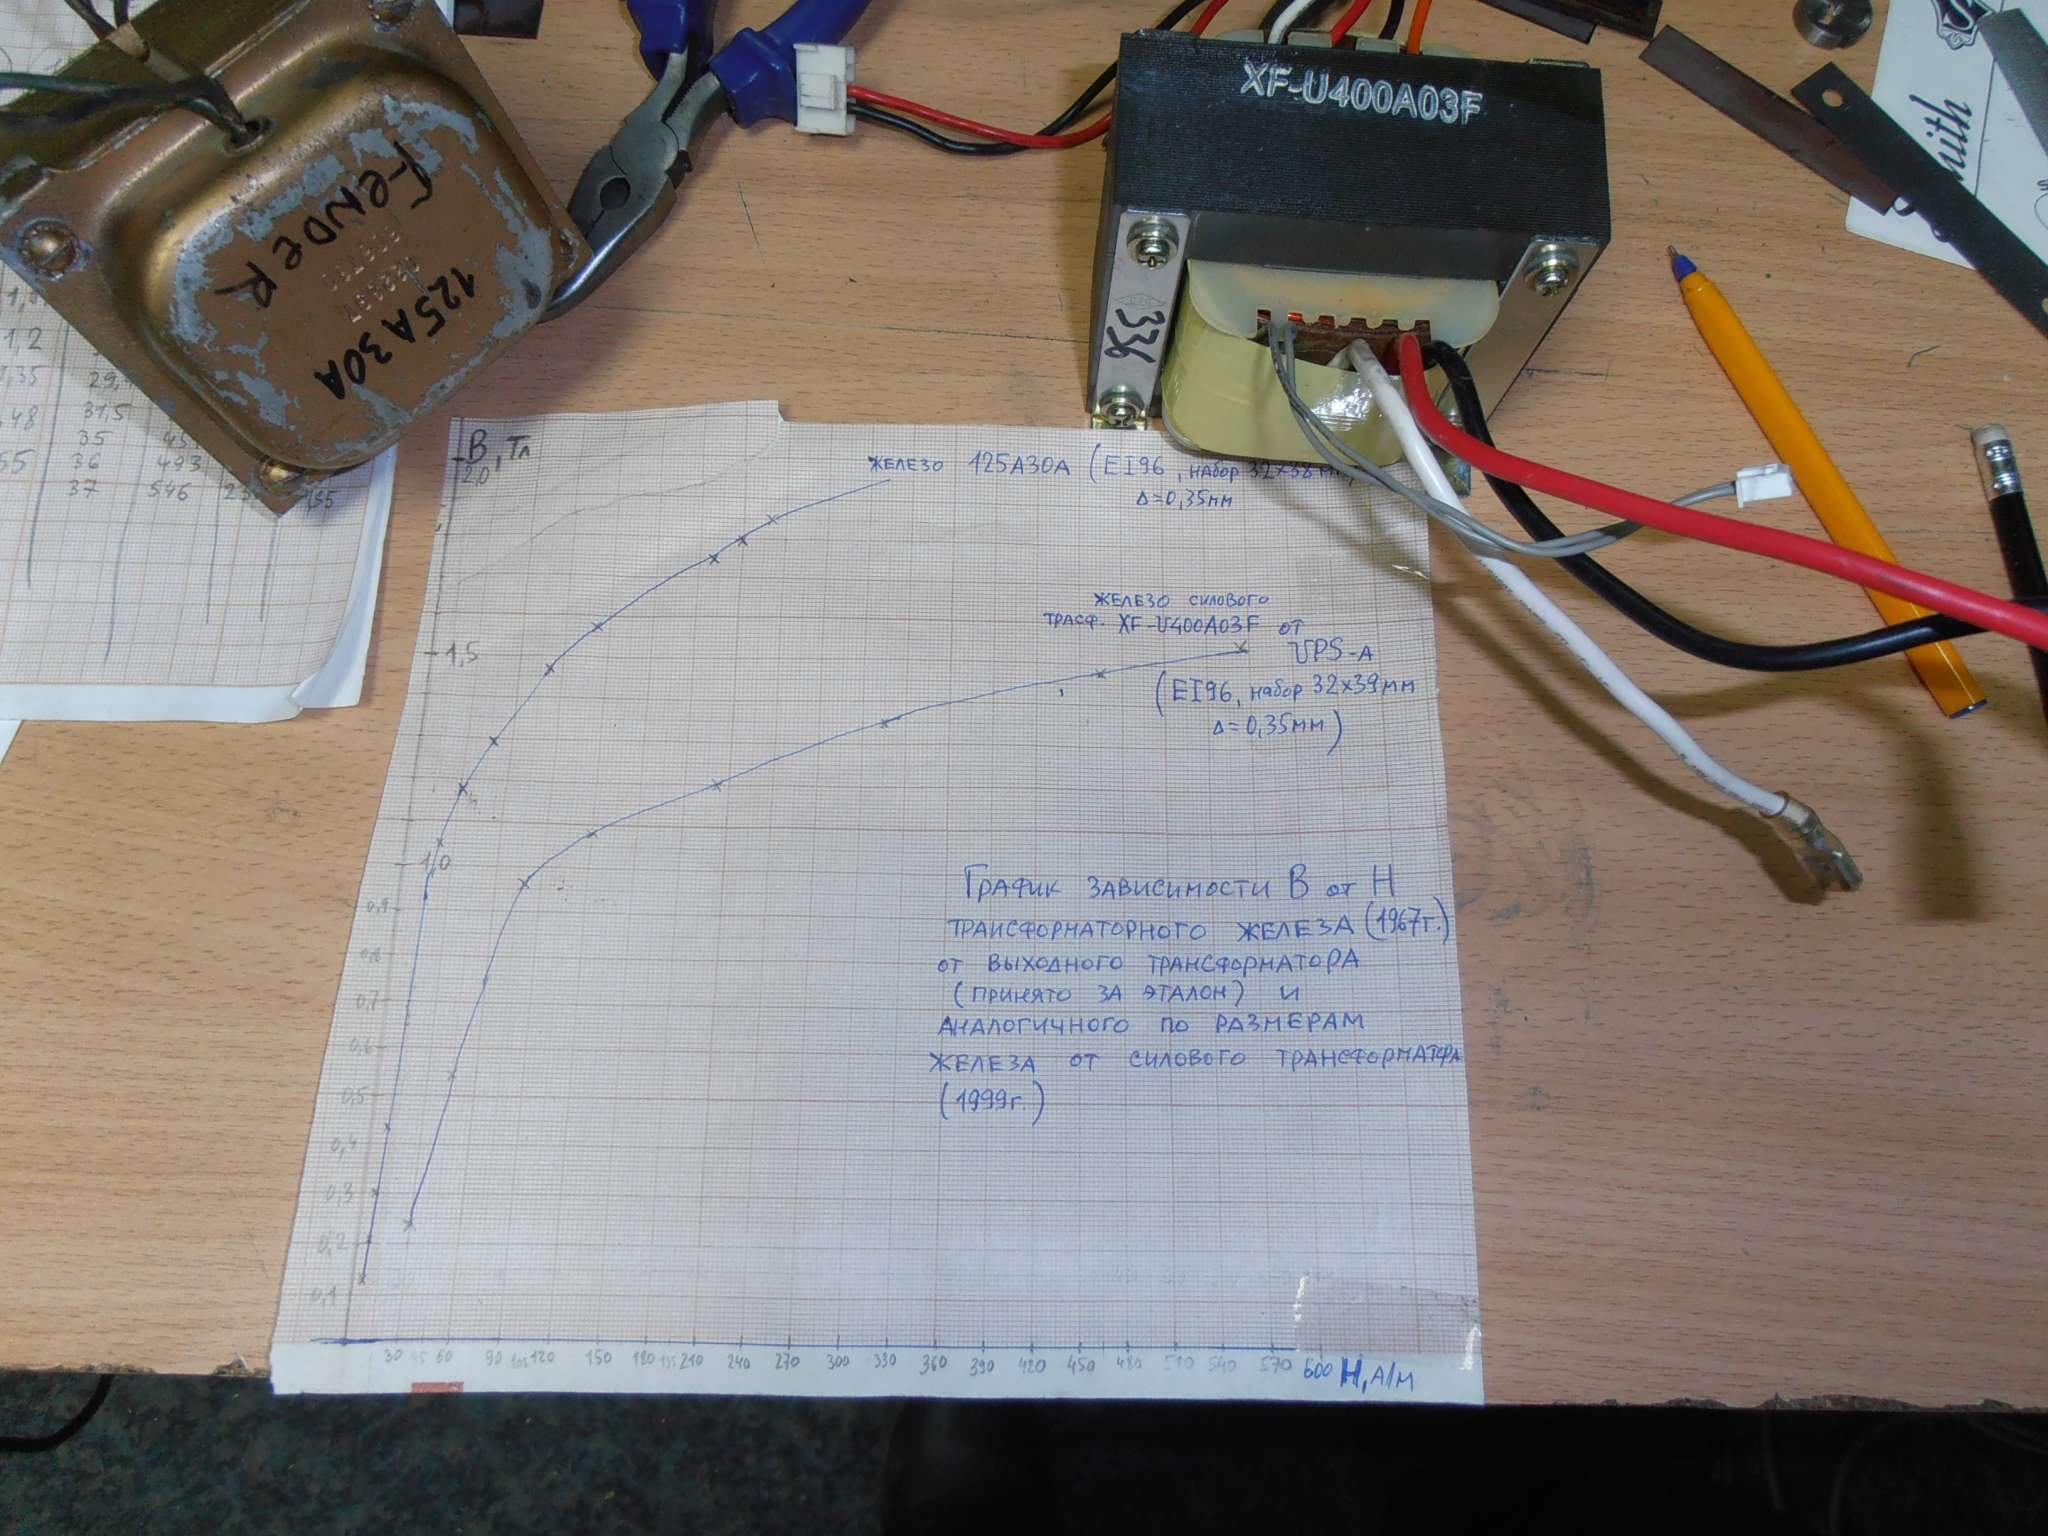 FENDER
125A30A
XF-U400A03F
336
mith
1,2
29,
31,5
35
36 493
37 546
В, Тл
2,0
ЖЕЛЕЗО 125А30А (EI96, набор 32x38мм)
Δ=0,35мм
ЖЕЛЕЗО СИЛОВОГО
ТРАСФ. XF-U400A03F ОТ
UPS-A
(EI96, набор 32x39мм
Δ=0,35мм)
1,5
1,0
0,9
0,8
0,7
0,6
0,5
0,4
0,3
0,2
0,1
ГРАФИК ЗАВИСИМОСТИ В от Н
ТРАНСФОРМАТОРНОГО ЖЕЛЕЗА (1967г.)
ОТ ВЫХОДНОГО ТРАНСФОРМАТОРА
(ПРИНЯТО ЗА ЭТАЛОН) И
АНАЛОГИЧНОГО ПО РАЗМЕРАМ
ЖЕЛЕЗА ОТ СИЛОВОГО ТРАНСФОРМАТОРА
(1999г.)
30 45 60 90 105 120 150 180 195 210 240 270 300 330 360 390 420 450 480 510 540 570 600 Н, А/м